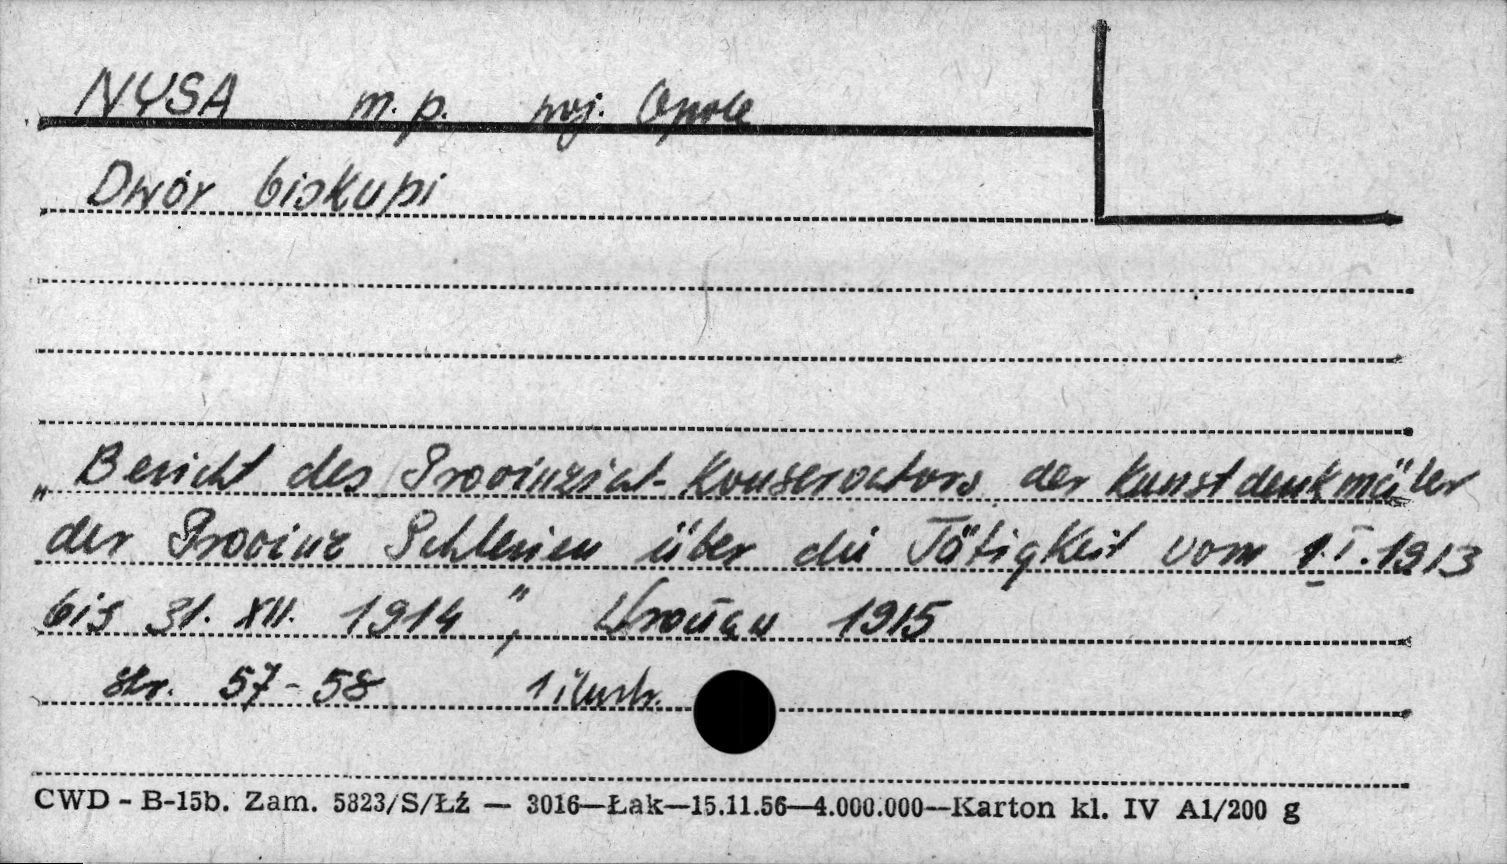 NYSA m. p. woj. Opole
Dwór biskupi
„Bericht des Provinzial-Konservators der Kunstdenkmäler
der Provinz Schlesien über die Tätigkeit vom 1.I.1913
bis 31. XII. 1914", Wrocław 1915
str. 57-58 1 ilustr.
CWD - B-15b. Zam. 5823/S/Łź — 3016—Łak—15.11.56—4.000.000—Karton kl. IV A1/200 g